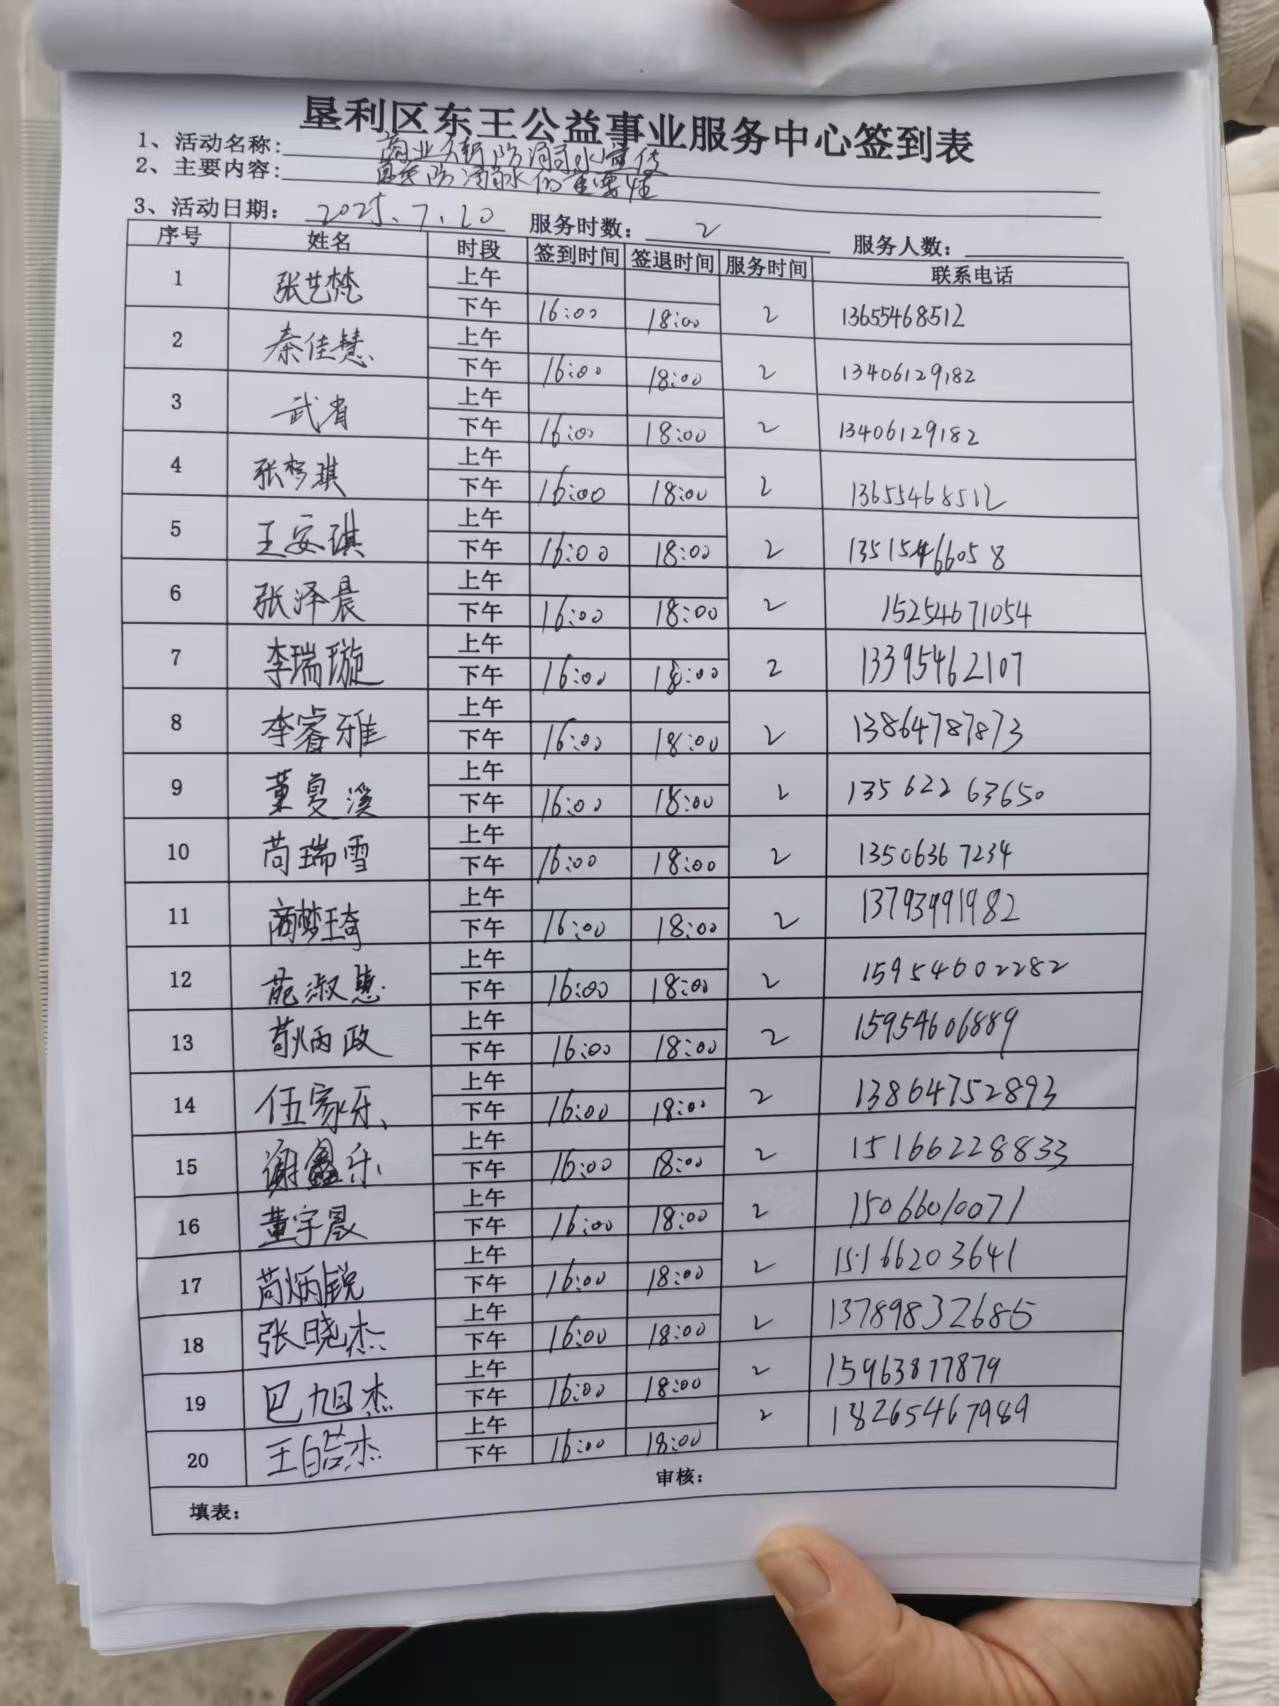 垦利区东王公益事业服务中心签到表
1、活动名称: 商业大街防溺水宣传
2、主要内容: 宣传防溺水的重要性
3、活动日期: 2025.7.20 服务时数: 2 服务人数:
序号 姓名 时段 签到时间 签退时间 服务时间 联系电话
1 张艺梵 上午
下午 16:00 18:00 2 13655468512
2 秦佳慧 上午
下午 16:00 18:00 2 13406129182
3 武肖 上午
下午 16:00 18:00 2 13406129182
4 张梦琪 上午
下午 16:00 18:00 2 13655468512
5 王安琪 上午
下午 16:00 18:00 2 13515466058
6 张泽晨 上午
下午 16:00 18:00 2 15254671054
7 李瑞璇 上午
下午 16:00 18:00 2 13395462107
8 李睿雅 上午
下午 16:00 18:00 2 13864787873
9 董夏溪 上午
下午 16:00 18:00 2 13562263650
10 苘瑞雪 上午
下午 16:00 18:00 2 13506367234
11 商梦琦 上午
下午 16:00 18:00 2 13793991982
12 苑淑慧 上午
下午 16:00 18:00 2 15954602282
13 苟炳政 上午
下午 16:00 18:00 2 15954606889
14 伍家乐 上午
下午 16:00 18:00 2 13864752893
15 谢鑫乐 上午
下午 16:00 18:00 2 15166228833
16 董宇晟 上午
下午 16:00 18:00 2 15066010071
17 苘炳锐 上午
下午 16:00 18:00 2 15166203641
18 张晓杰 上午
下午 16:00 18:00 2 13789832685
19 巴旭杰 上午
下午 16:00 18:00 2 15963877879
20 王皓杰 上午
下午 16:00 18:00 2 18265467989
填表: 审核: